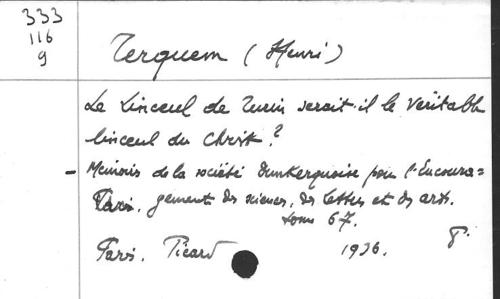 333
116
9
Terquem (Henri)
Le linceul de Turin serait-il le véritable
linceul du Christ?
- Mémoires de la société dunkerquoise pour l'Encoura=
Paris. gement des sciences, des lettres et des arts.
tome 67.
Paris. Picard 1936. 8°.